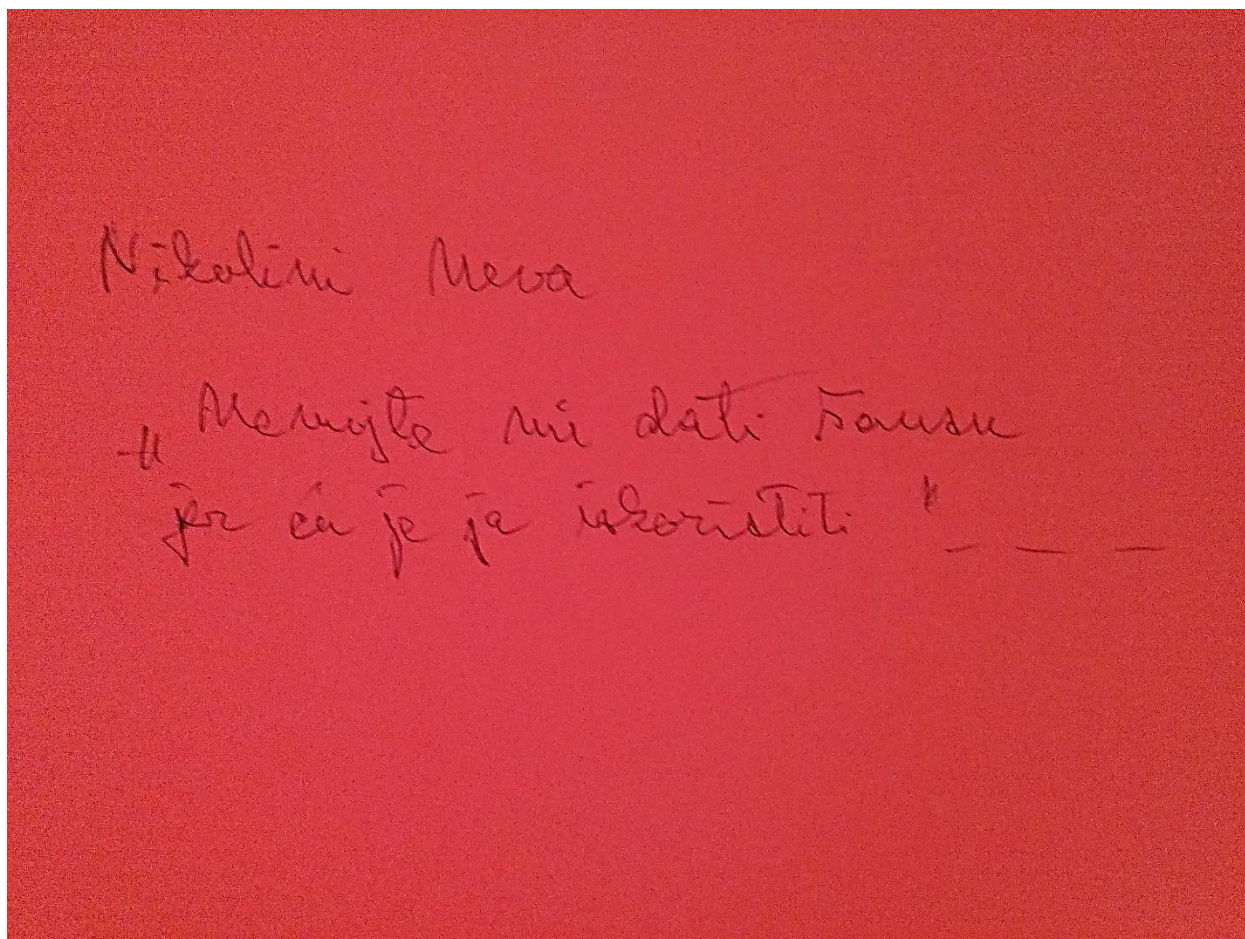 Nikolini Neva
„Nemojte mi dati šansu
jer ću je ja iskoristiti" _ _ _